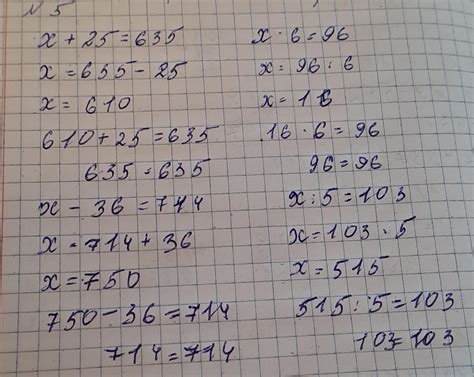 № 5
x + 25 = 635
x = 635 - 25
x = 610
610 + 25 = 635
635 = 635
x - 36 = 714
x = 714 + 36
x = 750
750 - 36 = 714
714 = 714
x · 6 = 96
x = 96 : 6
x = 16
16 · 6 = 96
96 = 96
x : 5 = 103
x = 103 · 5
x = 515
515 : 5 = 103
103 = 103